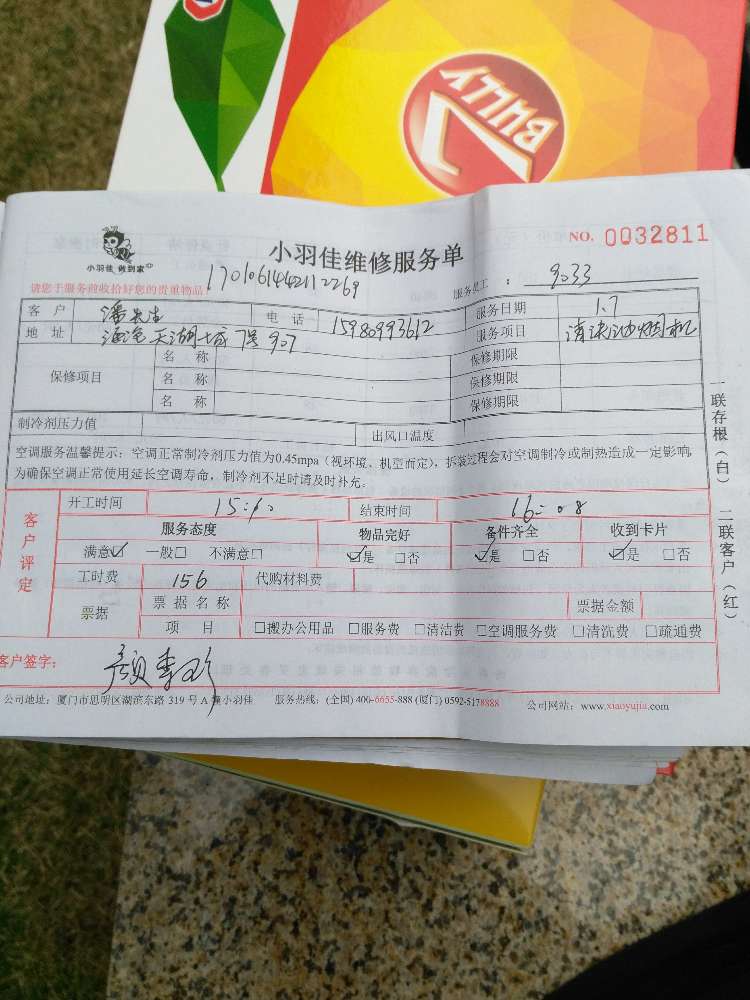 BULLY
小羽佳 做到家
小羽佳维修服务单
NO. 0032811
请您于服务前收拾好您的贵重物品
1701061442112269
服务员工：9033
客户 潘先生 电话 15980993612 服务日期 1.7
地址 天湖城7号907 服务项目 清洗油烟机
保修项目 名称 保修期限
名称 保修期限
名称 保修期限
制冷剂压力值 出风口温度
空调服务温馨提示：空调正常制冷剂压力值为0.45mpa（视环境、机型而定），拆装过程会对空调制冷或制热造成一定影响，
为确保空调正常使用延长空调寿命，制冷剂不足时请及时补充。
客户评定
开工时间 结束时间 16:08
服务态度 物品完好 备件齐全 收到卡片
满意☑ 一般□ 不满意□ ☑是 □否 ☑是 □否 ☑是 □否
工时费 156 代购材料费
票据 票据名称 票据金额
项目 □搬办公用品 □服务费 □清洁费 □空调服务费 □清洗费 □疏通费
客户签字：
公司地址：厦门市思明区湖滨东路319号A幢小羽佳 服务热线：(全国) 400-6655-888 (厦门) 0592-5178888 公司网站：www.xiaoyujia.com
一联存根（白） 二联客户（红）